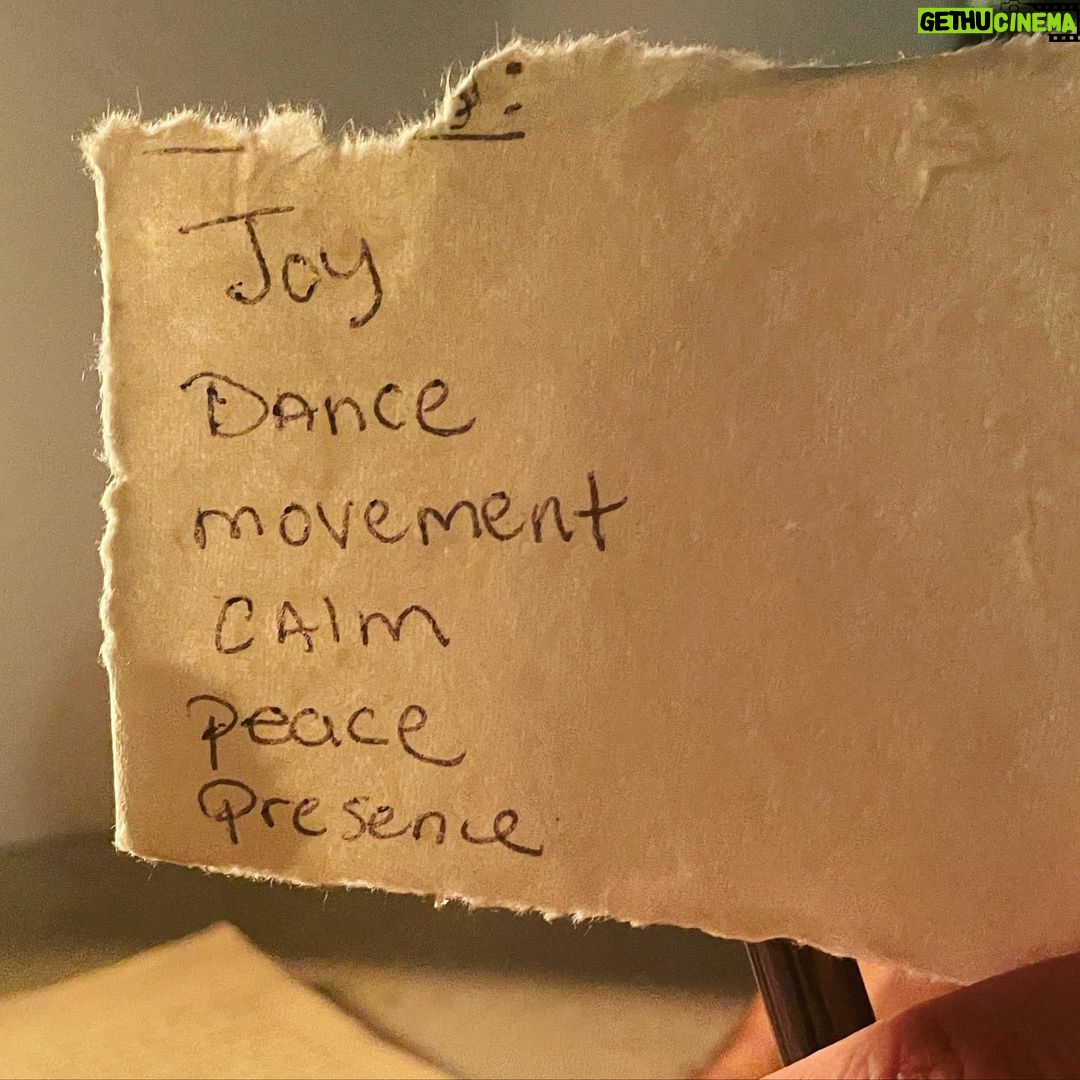 GETHUCINEMA
Joy
Dance
movement
CAlm
peace
Presence